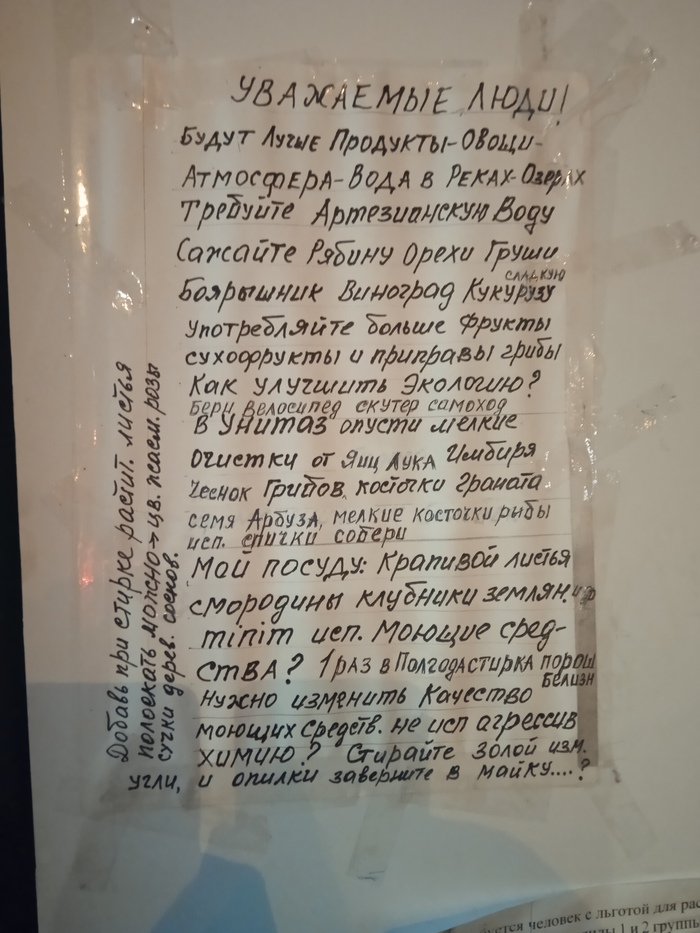 УВАЖАЕМЫЕ ЛЮДИ!
Будут Лучше Продукты-Овощи-
Атмосфера-Вода в Реках-Озерах
Требуйте Артезианскую Воду
Сажайте Рябину Орехи Груши
сладкую
Боярышник Виноград Кукурузу
Употребляйте больше Фрукты
сухофрукты и приправы грибы
Как улучшить Экологию?
Бери велосипед скутер самоход
В Унитаз опусти мелкие
очистки от Яиц Лука Имбиря
Чеснок Грибов, косточки граната
семя Арбуза, мелкие косточки рыбы
исп. спички собери
Мой посуду: Крапивой листья
смородины клубники землян.
minim исп. Моющие сред-
ства? 1 раз в Полгода стирка порош
Белизн
Нужно изменить Качество
моющих средств. не исп агрессив
химию? Стирайте золой изм.
угли, и опилки заверните в майку....?
Добавь при стирке растит. листья
полоскать можно→цв. жасм. розы
сучки дерев. соснов.
уется человек с льготой для рас
1 и 2 группы